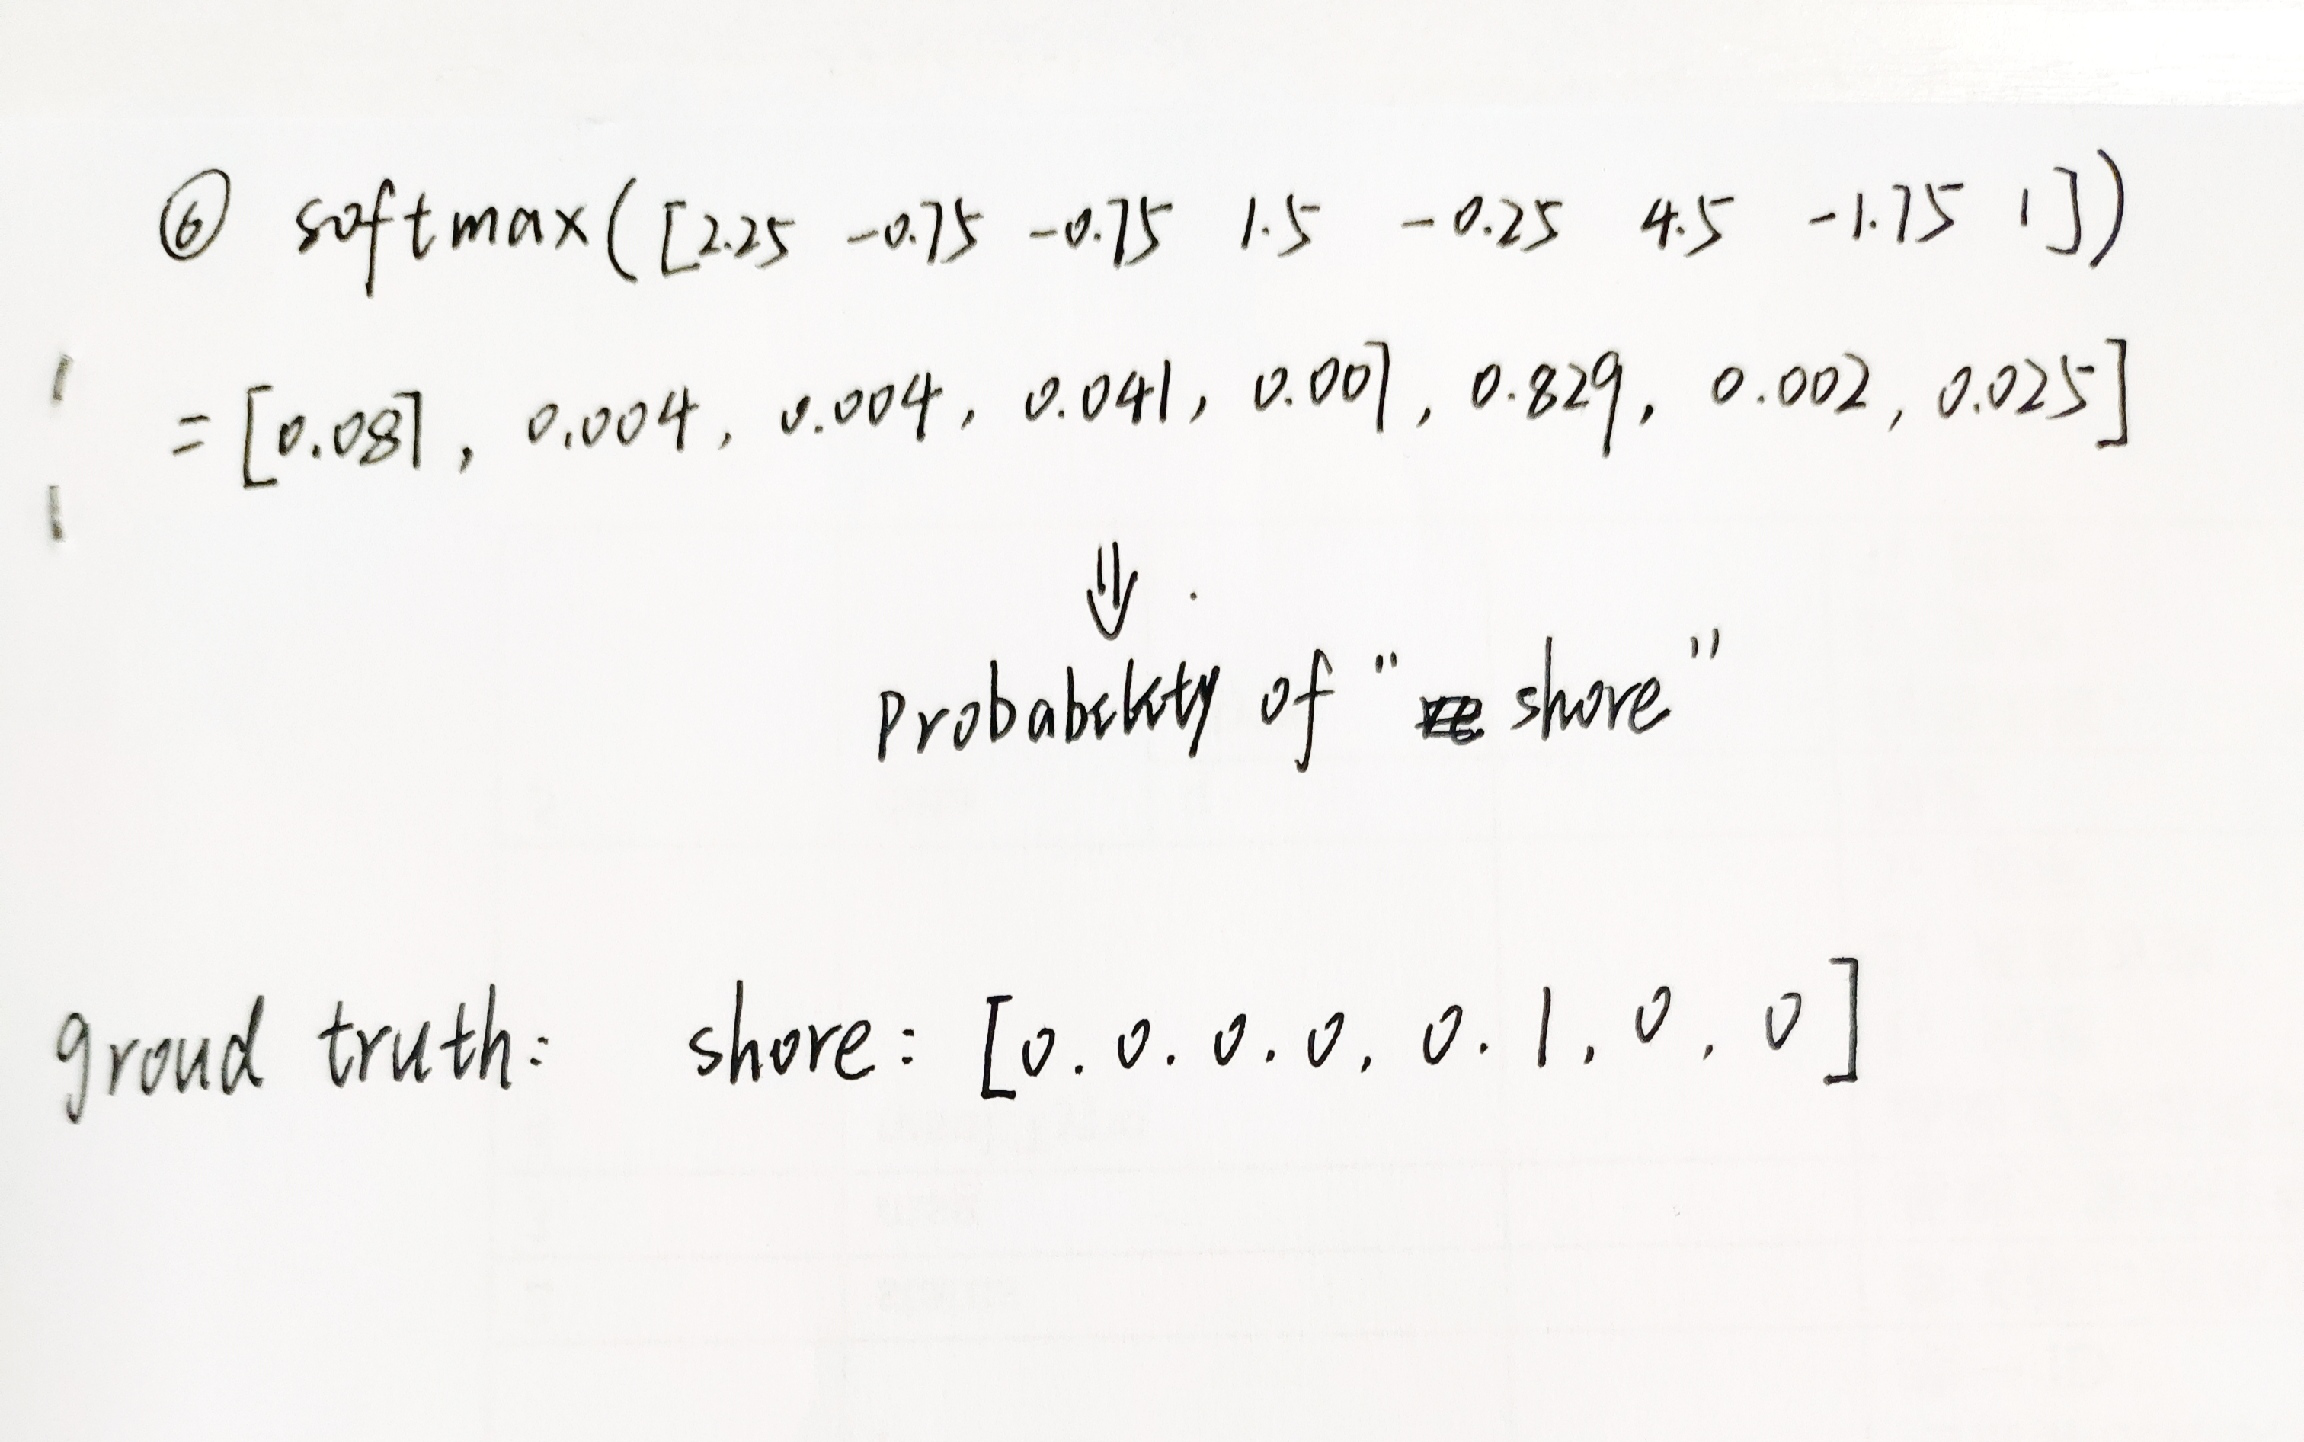 ⑥ softmax([2.25 -0.75 -0.75 1.5 -0.25 4.5 -1.75 1])
= [0.087, 0.004, 0.004, 0.041, 0.007, 0.829, 0.002, 0.025]
⇓
Probability of " shore"
groud truth: shore: [0. 0. 0. 0, 0. 1, 0, 0]